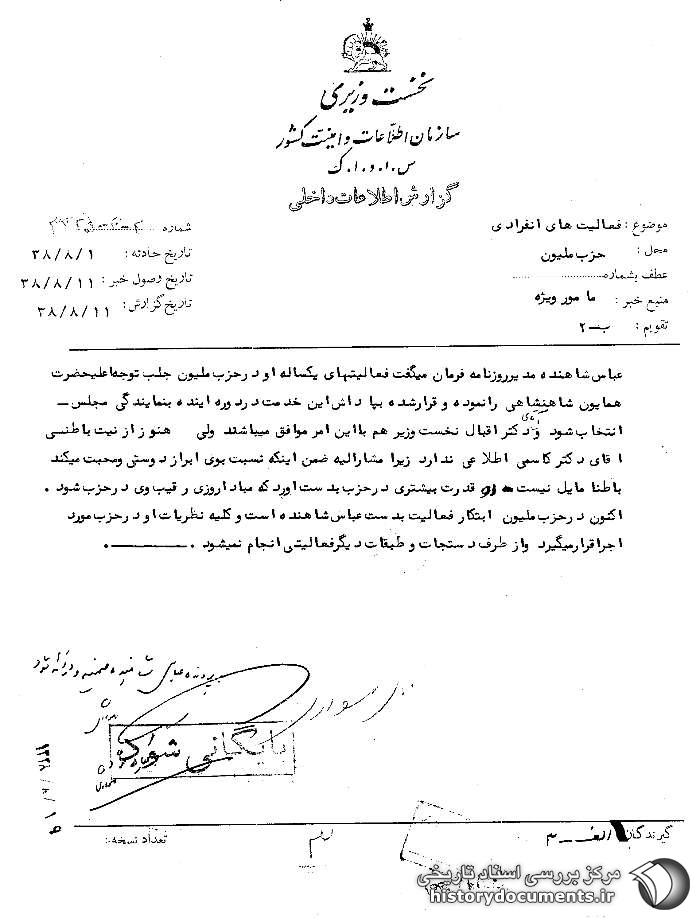 نخست وزیری
سازمان اطلاعات و امنیت کشور
س.ا.و.ا.ک
گزارش اطلاعات داخلی
موضوع : فعالیت های انفرادی
محل : حزب ملیون
عطف بشماره
منبع خبر : مامور ویژه
تقویم : ب-۲
شماره
تاریخ حادثه : ۳۸/۸/۱
تاریخ وصول خبر : ۳۸/۸/۱۱
تاریخ گزارش : ۳۸/۸/۱۱
عباس شاهنده مدیر روزنامه فرمان میگفت فعالیتهای یکساله او در حزب ملیون جلب توجه اعلیحضرت
همایون شاهنشاهی را نموده و قرار شده بپاداش این خدمت در دوره اینده بنمایندگی مجلس –
انتخاب شود و آقای دکتر اقبال نخست وزیر هم با این امر موافق میباشند ولی هنوز از نیت باطنی
اقای دکتر کاسمی اطلاعی ندارد زیرا مشارالیه ضمن اینکه نسبت بوی ابراز دوستی ومحبت میکند
باطنا مایل نیست او قدرت بیشتری در حزب بدست اورد که مبادا روزی رقیب وی در حزب شود .
اکنون در حزب ملیون ابتکار فعالیت بدست عباس شاهنده است و کلیه نظریات او در حزب مورد
اجرا قرار میگیرد واز طرف دستجات و طبقات دیگر فعالیتی انجام نمیشود .
پرونده عباس شاهنده ضمیمه و ارائه شود
بایگانی شود
۱۳۳۸/۸/۱۹
گیرندگان الف – ۳
تعداد نسخه :
مرکز بررسی اسناد تاریخی
historydocuments.ir